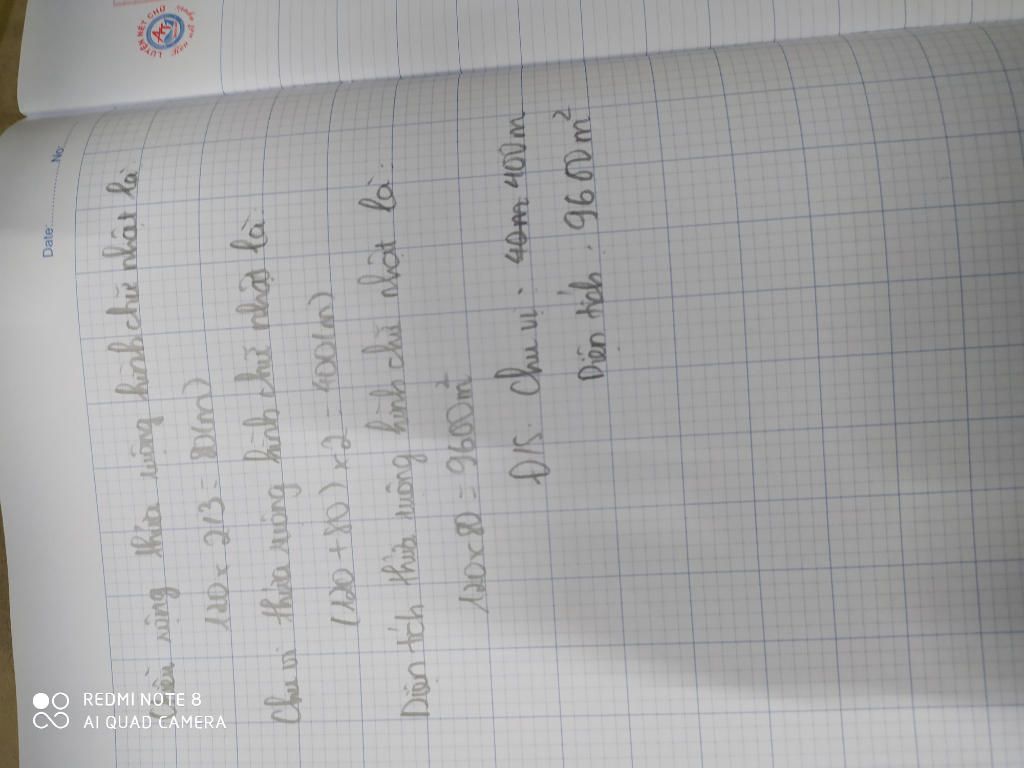 Date: No:
rộng thửa ruộng hình chữ nhật là
120 x 2/3 = 80(m)
Chu vi thửa ruộng hình chữ nhật là
(120 + 80) x 2 = 400(m)
Diện tích thửa ruộng hình chữ nhật là:
120 x 80 = 9600m²
Đ/S: Chu vi: 400m
Diện tích: 9600m²
REDMI NOTE 8
AI QUAD CAMERA